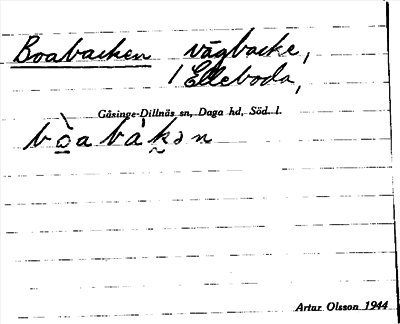 Boabacken vägbacke,
i Elleboda,
Gåsinge-Dillnäs sn, Daga hd, Söd. l.
bò̲abàk̰ən
Artur Olsson 1944